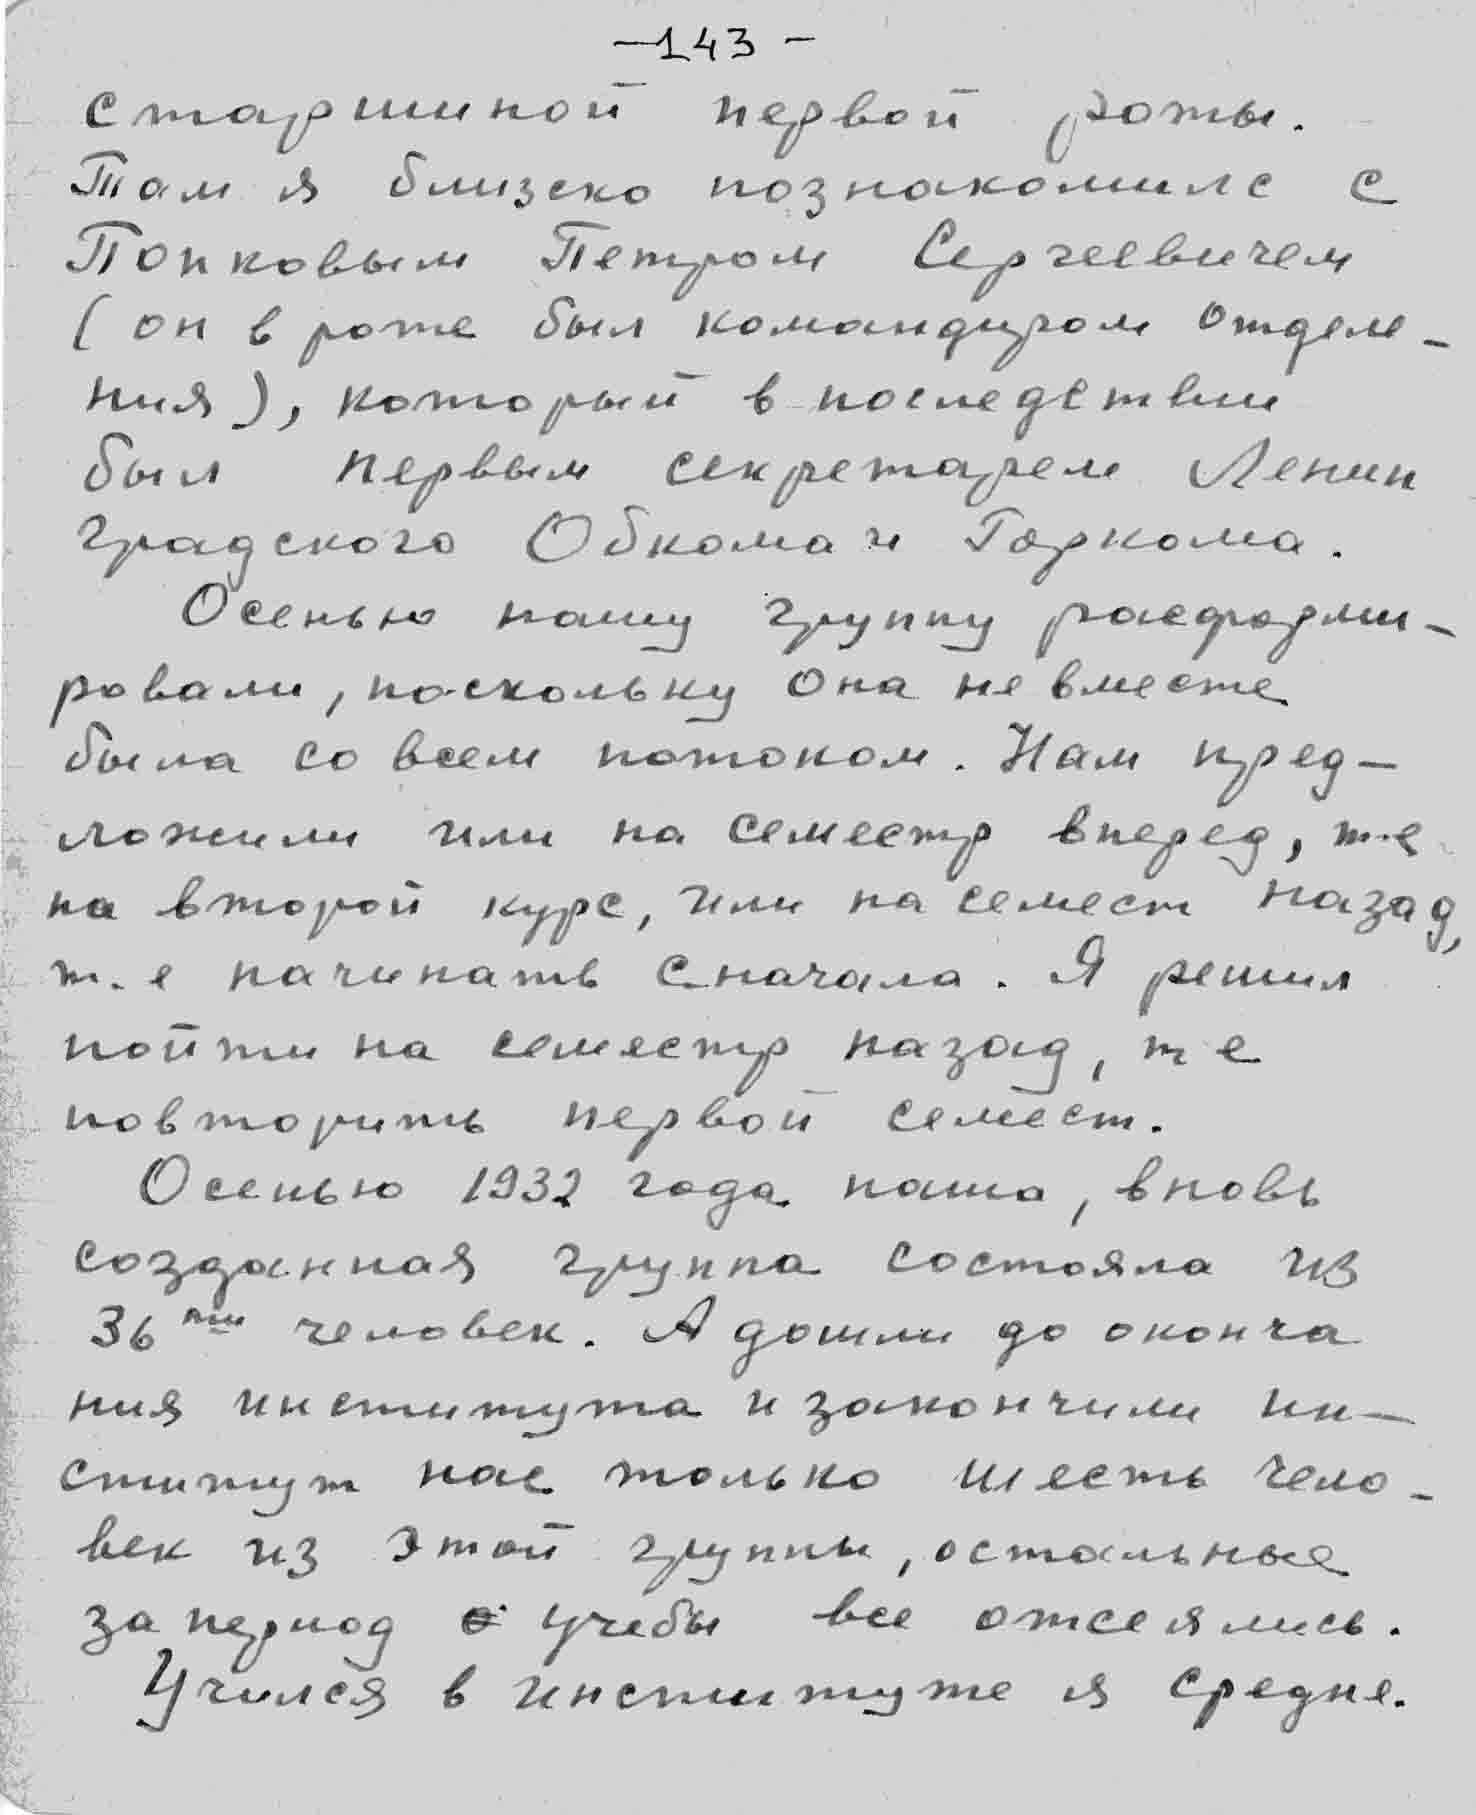 -143-
старшиной первой роты.
Там я близско познакомилс с
Попковым Петром Сергеевичем
(он в роте был командиром отделе-
ния), который в последствии
был первым секретарем Ленин
градского Обкома и Горкома.
Осенью нашу группу расформи-
ровали, поскольку она не вместе
была со всем потоком. Нам пред-
ложили или на семестр вперед, т.е
на второй курс, или на семест назад,
т.е начинать сначала. Я решил
пойти на семестр назад, т е
повторить первой семест.
Осенью 1932 года наша, вновь
созданная группа состояла из
36ти человек. А дошли до оконча
ния института и закончили ин-
ститут нас только шесть чело-
век из этой группы, остальные
за период учебы все отсеялись.
Учился в институте я средне.